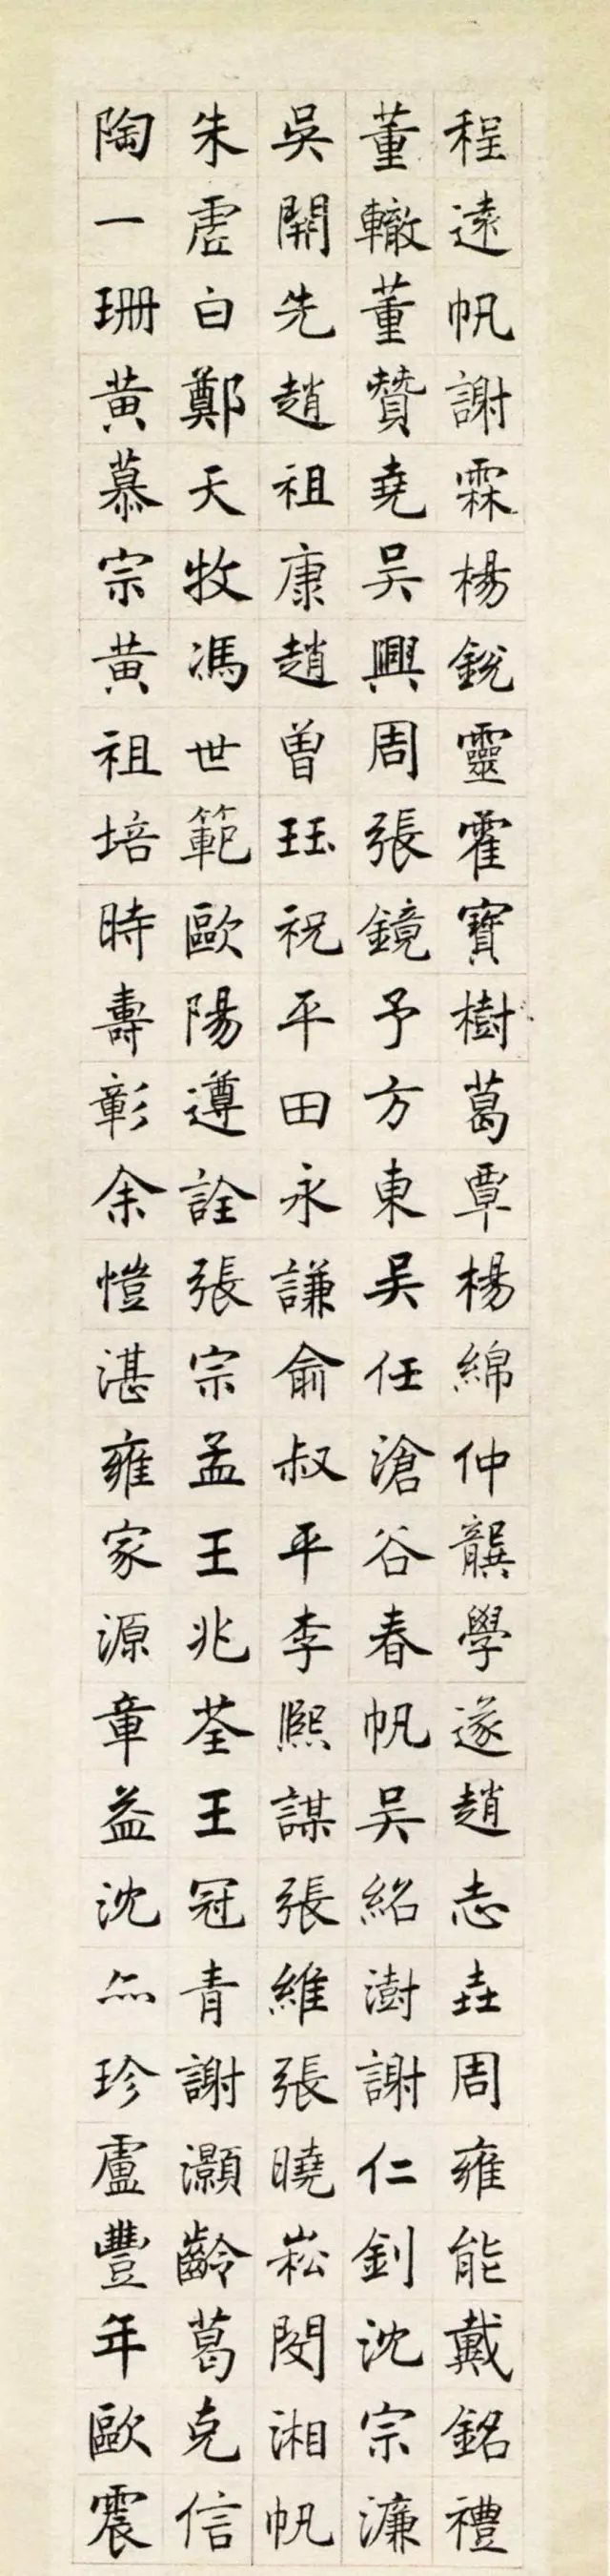 程遠帆謝霖楊銳靈霍寶樹葛覃楊綿仲龔學遂趙志垚周雍能戴銘禮
董轍董贊堯吳興周張鏡予方東吳任滄谷春帆吳紹澍謝仁釗沈宗濂
吳開先趙祖康趙曾玨祝平田永謙俞叔平李熙謀張維張曉崧閔湘帆
朱虛白鄭天牧馮世範歐陽遵詮張宗孟王兆荃王冠青謝灝齡葛克信
陶一珊黃慕宗黃祖培時壽彰余愷湛雍家源章益沈珍盧豐年歐震